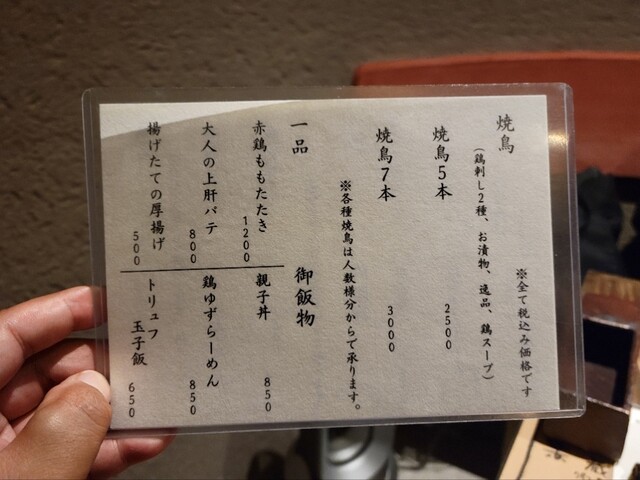 ※全て税込み価格です
焼鳥
(鶏刺し2種、お漬物、逸品、鶏スープ)
焼鳥5本 2500
焼鳥7本 3000
※各種焼鳥は人数様分からで承ります。
一品
赤鶏ももたたき 1200
大人の上肝パテ 800
揚げたての厚揚げ 500
御飯物
親子丼 850
鶏ゆずらーめん 850
トリュフ
玉子飯 650